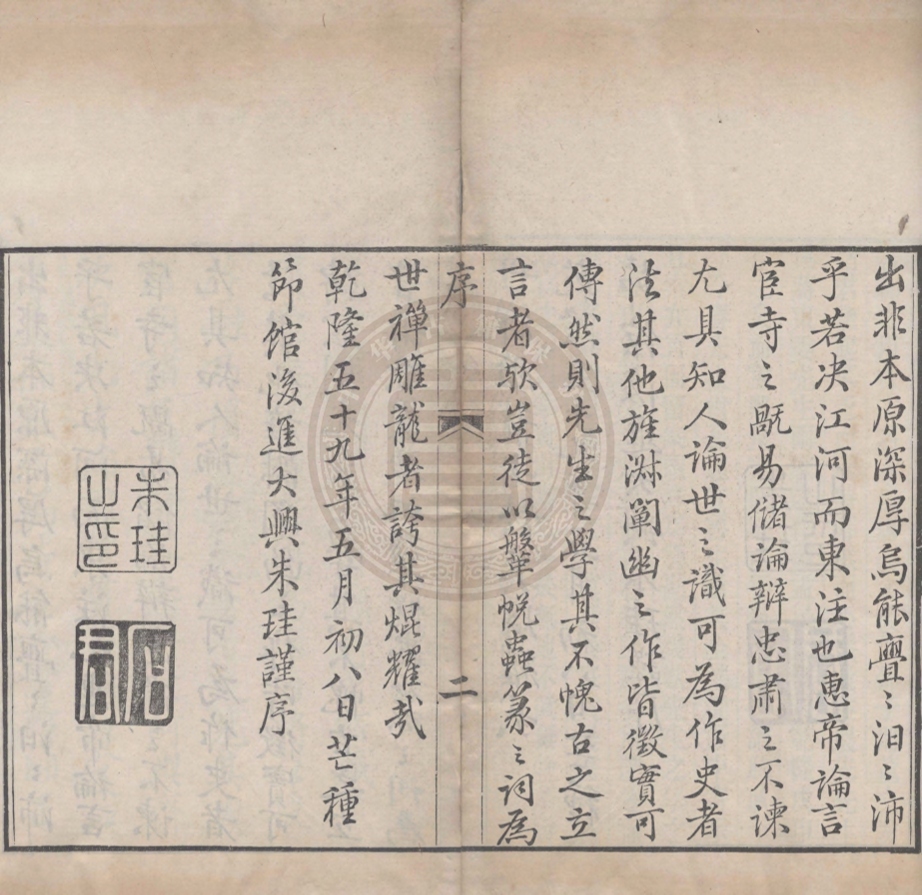 出非本原深厚烏能亹〻汨〻沛
乎若决江河而東注也惠帝論言
宦寺之厲易儲論辯忠肅之不諫
尤具知人論世之識可為作史者
法其他旌淋闡幽之作皆徵實可
傳然則先生之學其不愧古之立
言者歟豈徒以鞶帨蟲篆之詞為
序
二
世禪雕龍者誇其焜耀㢤
乾隆五十九年五月初八日芒種
節館後進大興朱珪謹序
朱珪之印
石君